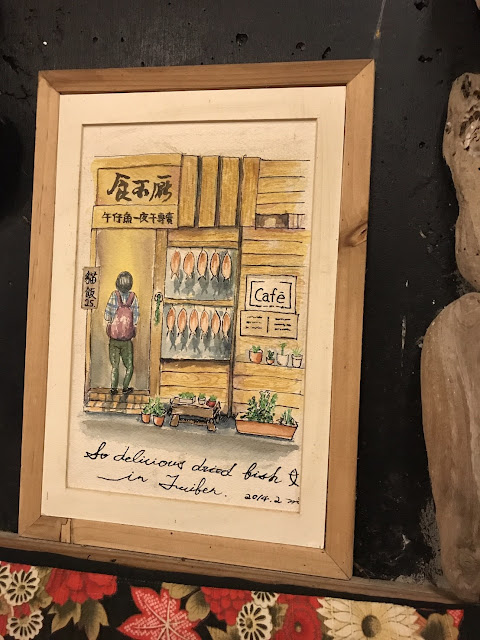 食不厭
午仔魚一夜干專賣
貓飯
25
Café
So delicious dried fish
in
2014.2